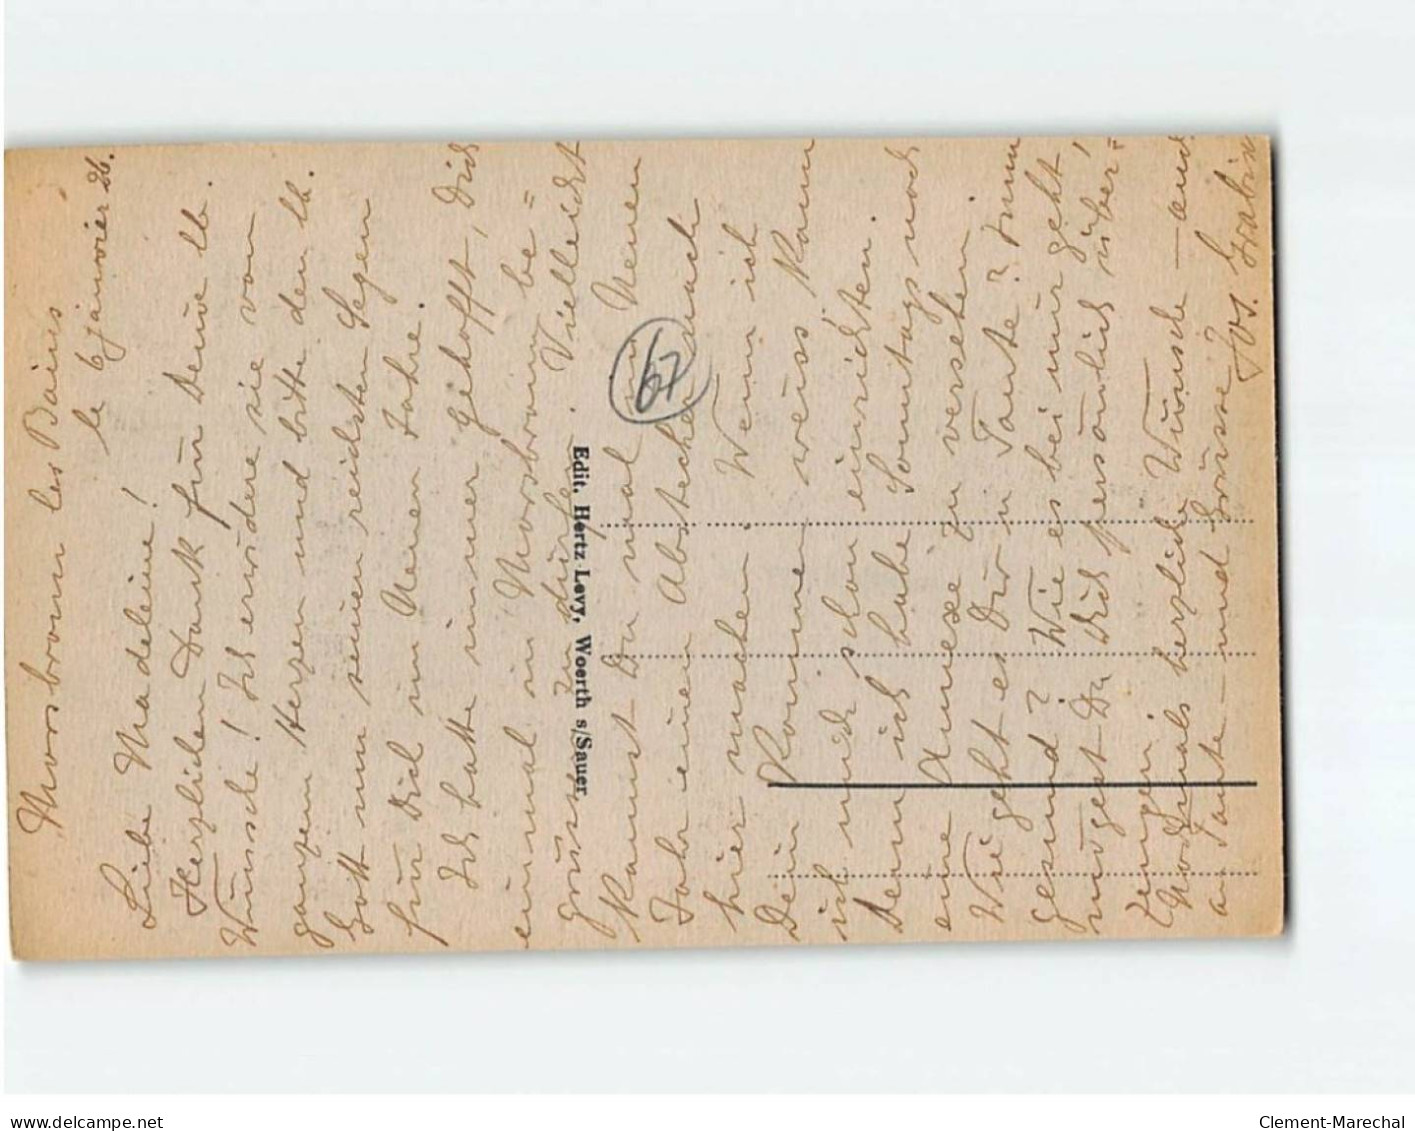 Morsbronn les Bains
le 6 janvier 26.
Liebe Madeleine!
Herzlichen Dank für Deine lb.
Wünsche! Ich erwidere sie von
ganzem Herzen und bitte den lb.
Gott um seinen reichsten Segen
für Dich im Neuen Jahre.
Ich hatte immer gehofft, Dich
einmal in Morsbronn be=
grüssen zu dürfen. Vielleicht
kannst Du mal im Neuen
Jahr einen Abstecher nach
hier machen. Wenn ich
Dein Kommen weiss kann
ich mich schon einrichten.
Denn ich habe Sonntags noch
eine Annexe zu versehen.
Wie geht es Dir u Tante? Immer
gesund? Wie es bei mir geht
mögest Du Dich persönlich über=
zeugen!
Nochmals herzliche Wünsche – auch
an Tante – und Grüsse Jos. Grabin
67
Edit. Hertz-Levy, Woerth s/Sauer
www.delcampe.net
Clement-Marechal